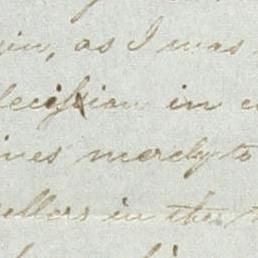 as I was
decision in
ines merely to
ellers in the